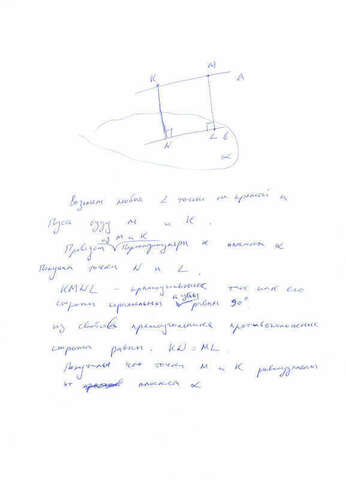 K
M
a
N
L
α
Возьмем любые 2 точки на прямой a
Пусть будут M и K.
из M и K
Проведем перпендикуляры к плоскости α
Получим точки N и L.
KMNL – прямоугольник так как его
и углы
стороны параллельны равны 90°
из свойства прямоугольника противоположные
стороны равны. KN = ML.
Получили что точки M и K равноудалены
от плоскости α